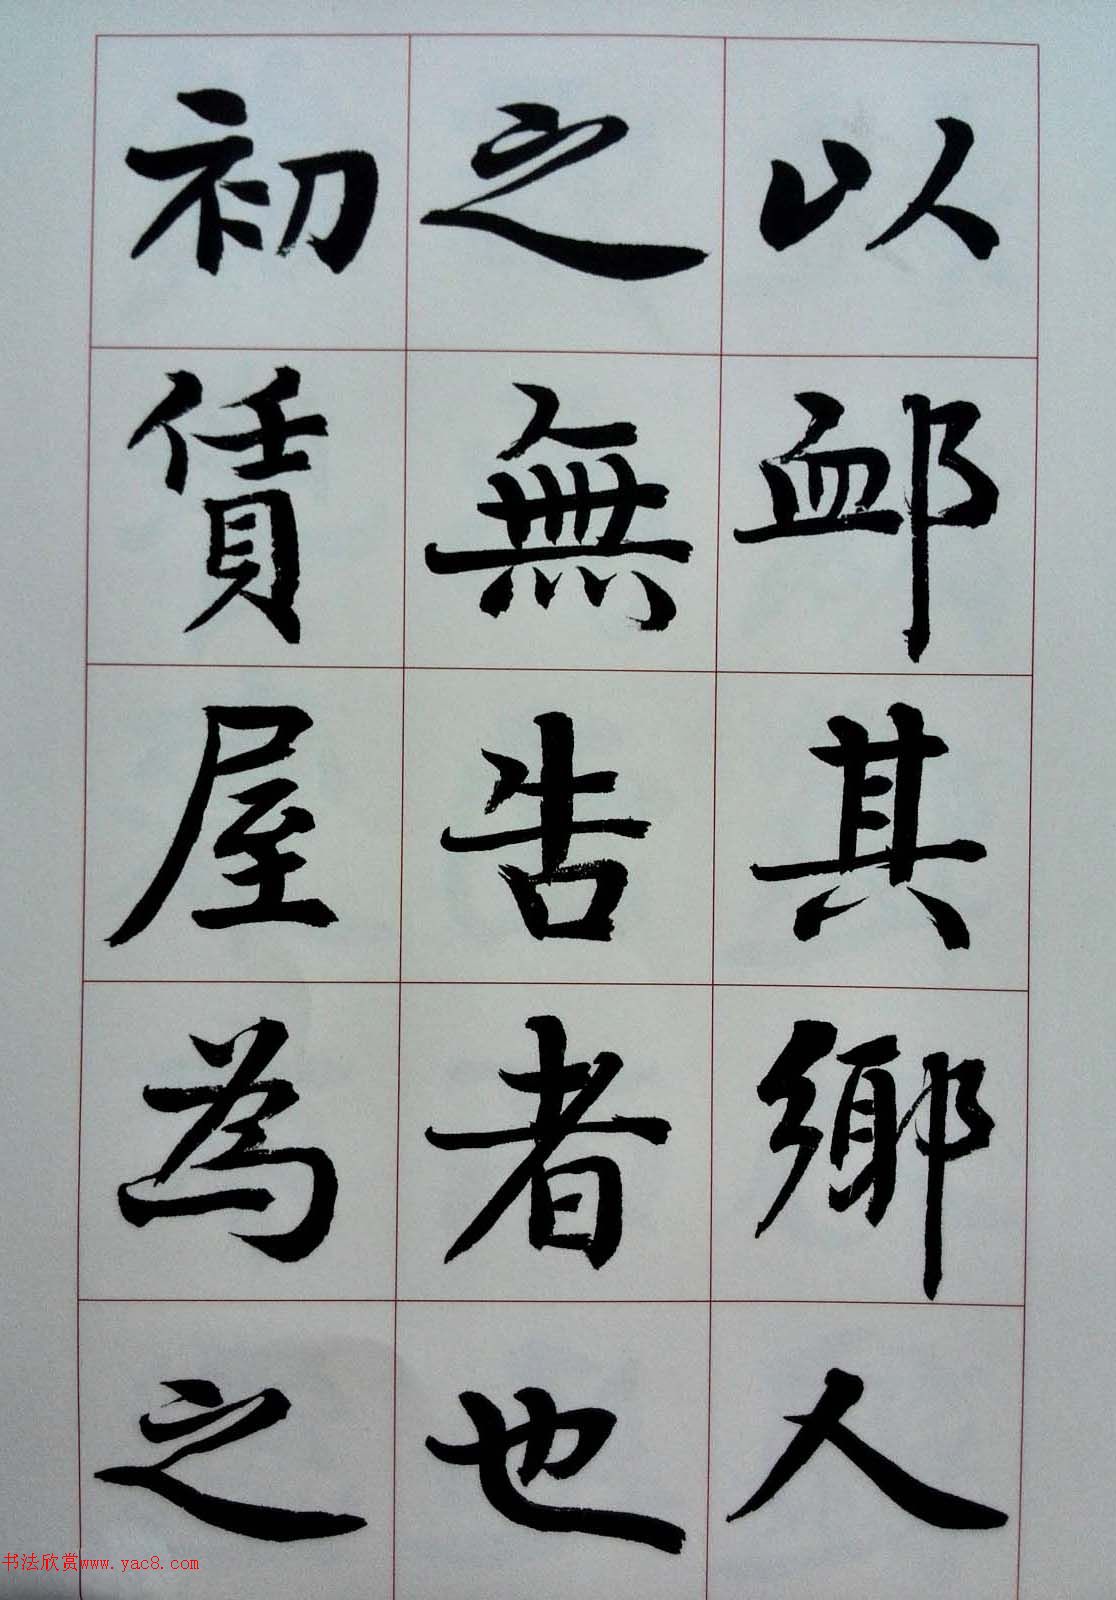 以卹其鄉人
之無告者也
初賃屋為之
书法欣赏www.yac8.com